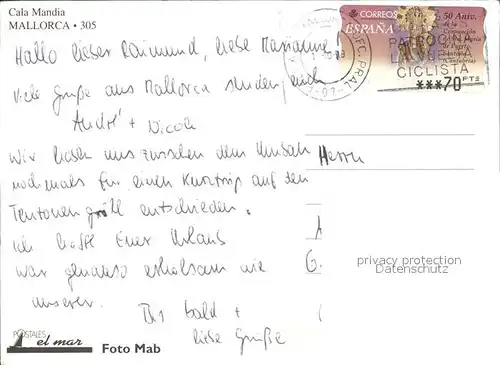 Cala Mandia
MALLORCA • 305
Hallo lieber Raimund, liebe Marianne
Viele Grüße aus Mallorca senden euch
André + Nicole
Wir haben uns zwischen dem
nochmals für einen Kurztrip auf den
entschieden.
Ich hoffe Euer Urlaub
war genauso erholsam wie
unserer.
Bis bald +
liebe Grüße
POSTALES
el mar
Foto Mab
CORREOS
ESPAÑA
50 Aniv.
CICLISTA
***70 PTS
Herrn
privacy protection
Datenschutz